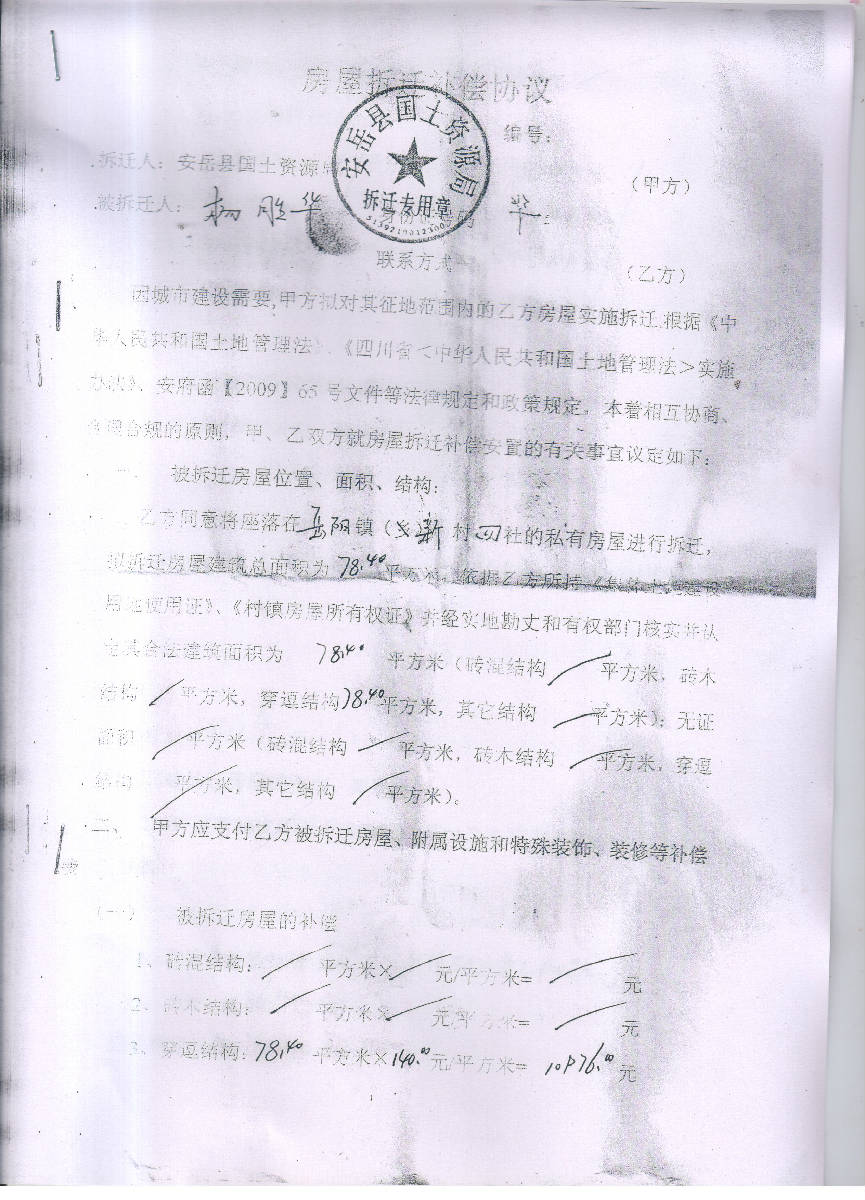 房屋拆迁补偿协议
编号:
拆迁人:安岳县国土资源局 (甲方)
安岳县国土资源局
拆迁专用章
5139210012300
被拆迁人:杨胜华 身份证号码 华:
联系方式 (乙方)
因城市建设需要,甲方拟对其征地范围内的乙方房屋实施拆迁.根据《中
华人民共和国土地管理法》、《四川省<中华人民共和国土地管理法>实施
办法》、安府函【2009】65号文件等法律规定和政策规定,本着相互协商、
合理合规的原则,甲、乙双方就房屋拆迁补偿安置的有关事宜议定如下:
一、 被拆迁房屋位置、面积、结构:
乙方同意将座落在岳阳镇(乡)新村四社的私有房屋进行拆迁,
拟拆迁房屋建筑总面积为78.40平方米,依据乙方所持《集体土地建设
用地使用证》、《村镇房屋所有权证》并经实地勘丈和有权部门核实并认
定其合法建筑面积为 78.40 平方米(砖混结构 / 平方米,砖木
结构 / 平方米,穿逗结构78.40平方米,其它结构 / 平方米);无证
面积 / 平方米(砖混结构 / 平方米,砖木结构 / 平方米,穿逗
结构 / 平方米,其它结构 / 平方米)。
二、 甲方应支付乙方被拆迁房屋、附属设施和特殊装饰、装修等补偿
(一) 被拆迁房屋的补偿
1、砖混结构: / 平方米× / 元/平方米= / 元
2、砖木结构: / 平方米× / 元/平方米= / 元
3、穿逗结构:78.40 平方米×140.00元/平方米= 10976.00元